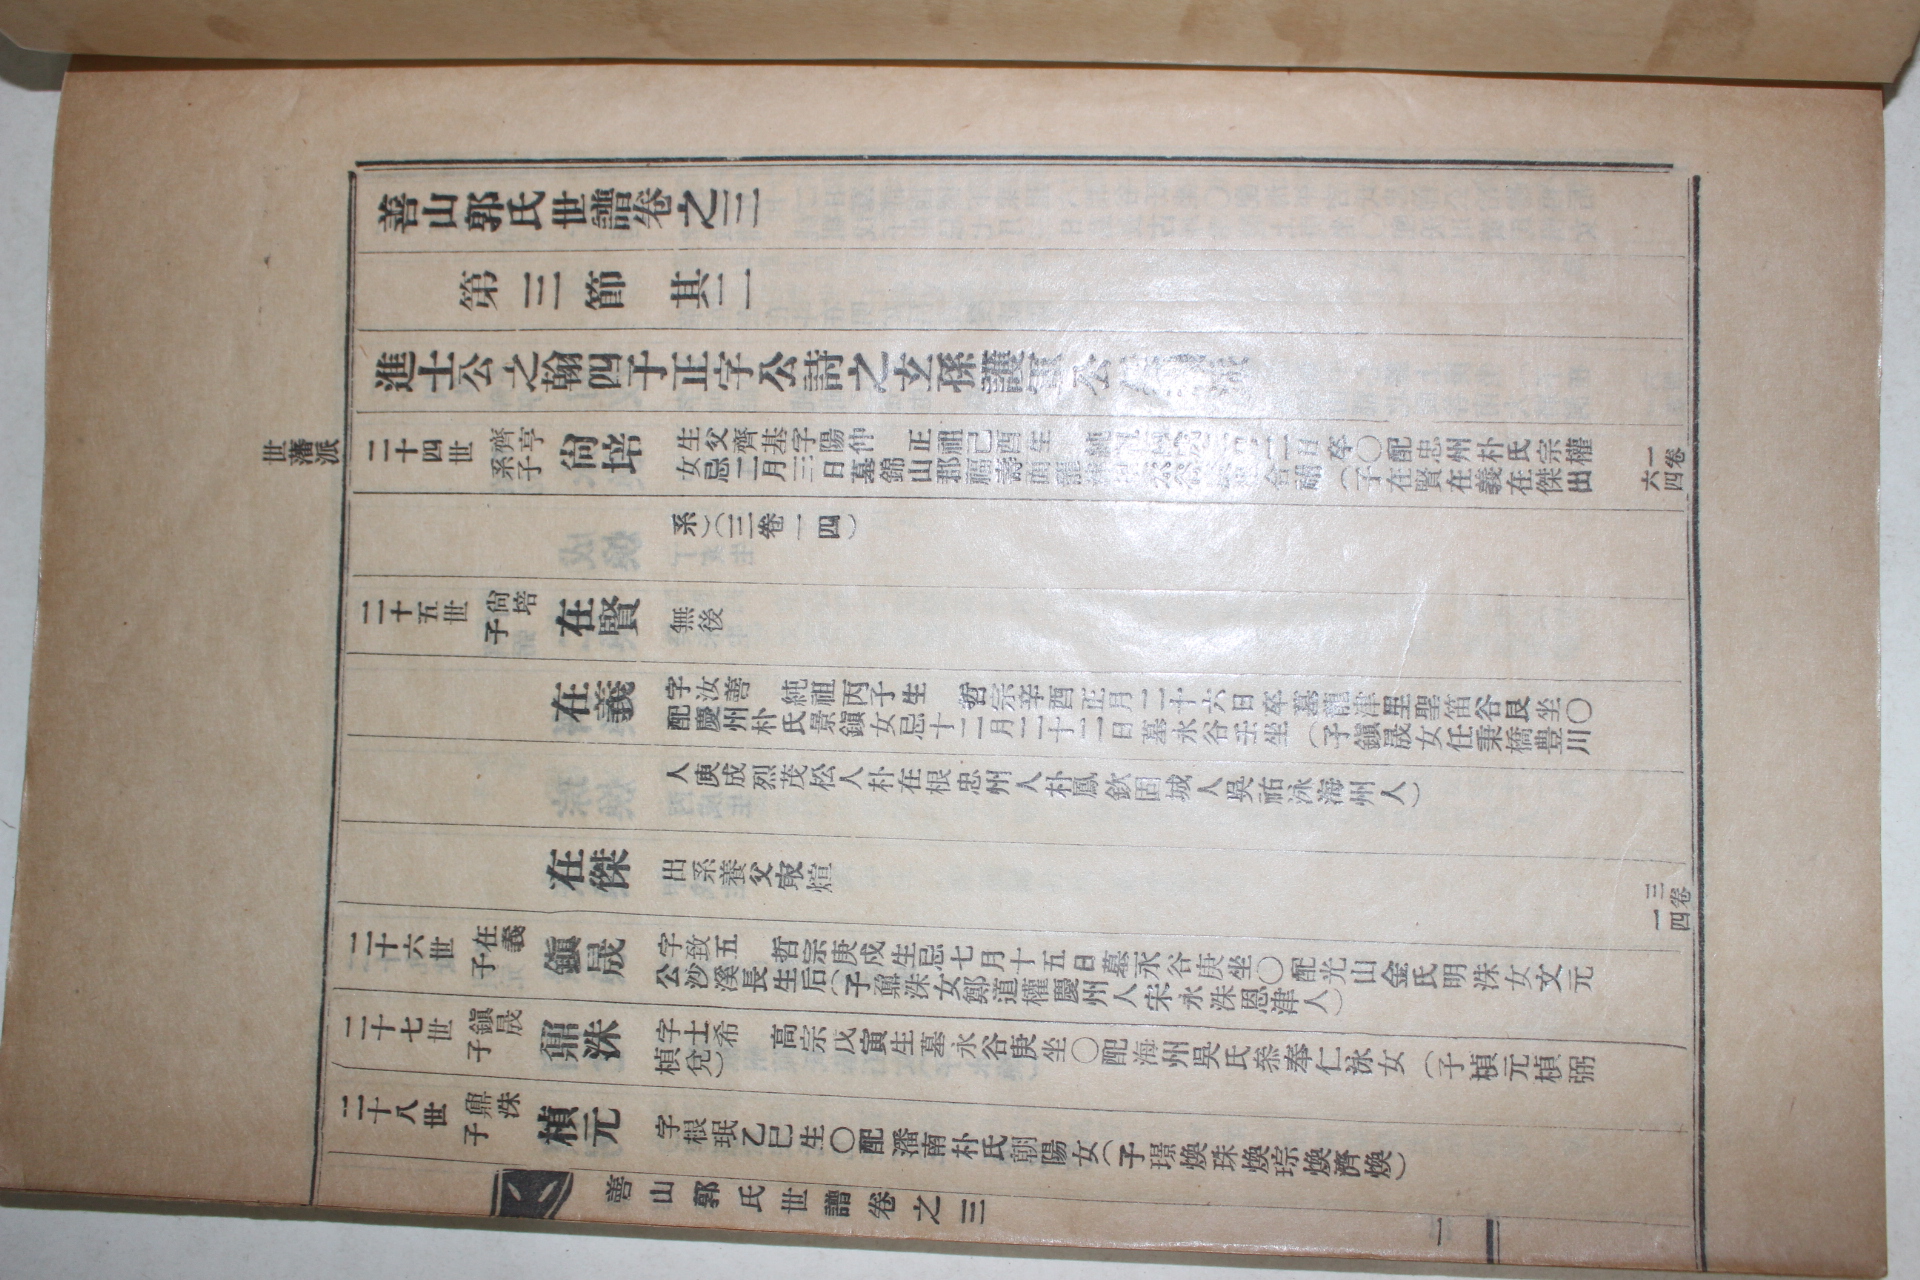 善山郭氏世譜卷之三
第三節 其二
進士公之翰四子正字公詩之玄孫護軍公
世藩派
二十四世
齊亨
系子
尙培
生父齊基字陽仲 正祖己酉生 純祖 二日卒〇配忠州朴氏宗權
女忌二月三日墓錦山郡福壽面龍 合祔(子在賢在義在傑出
一卷
六四
系)(三卷一四)
二十五世
尙培
子
在賢
無後
在義
字汝善 純祖丙子生 哲宗辛酉正月二十六日卒墓龍津里聖笛谷艮坐〇
配慶州朴氏景鎭女忌十二月二十二日墓永谷壬坐(子鎭晟女任秉橋豊川
人庾成烈茂松人朴在根忠州人朴鳳欽固城人吳祐泳海州人)
在傑
出系養父㝡煊
三卷
一四
二十六世
在義
子
鎭晟
字致五 哲宗庚戍生忌七月十五日墓永谷庚坐〇配光山金氏明洙女文元
公沙溪長生后(子鼐洙女鄭道權慶州人宋永洙恩津人)
二十七世
鎭晟
子
鼐洙
字士希 高宗戊寅生墓永谷庚坐〇配海州吳氏叅奉仁泳女(子楨元楨弼
楨兌)
二十八世
鼐洙
子
楨元
字根珉乙巳生〇配潘南朴氏朝陽女(子璟煥珠煥琮煥濟煥)
善山郭氏世譜卷之三
一